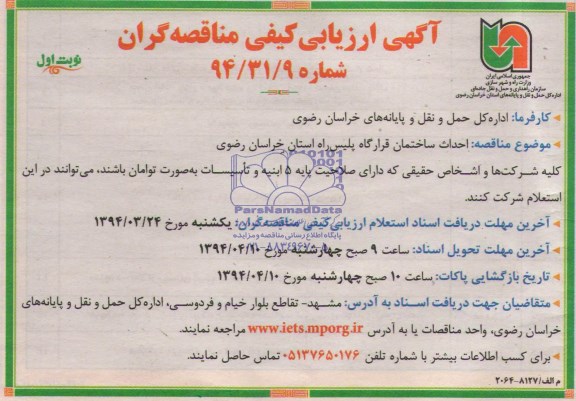 آگهی ارزیابی کیفی مناقصه‌گران
شماره ۹۴/۳۱/۹
نوبت اول
جمهوری اسلامی ایران
وزارت راه و شهرسازی
سازمان راهداری و حمل و نقل جاده‌ای
اداره کل حمل و نقل و پایانه‌های استان خراسان رضوی
کارفرما: اداره‌کل حمل و نقل و پایانه‌های خراسان رضوی
موضوع مناقصه: احداث ساختمان قرارگاه پلیس‌راه استان خراسان رضوی
کلیه شــرکت‌ها و اشخاص حقیقی که دارای صلاحیت پایه ۵ ابنیه و تأسیســات به‌صورت توامان باشند، می‌توانند در این
استعلام شرکت کنند.
آخرین مهلت دریافت اسناد استعلام ارزیابی‌کیفی مناقصه‌گران: یکشنبه مورخ ۱۳۹۴/۰۳/۲۴
آخرین مهلت تحویل اسناد: ساعت ۹ صبح چهارشنبه مورخ ۱۳۹۴/۰۴/۱۰
تاریخ بازگشایی پاکات: ساعت ۱۰ صبح چهارشنبه مورخ ۱۳۹۴/۰۴/۱۰
متقاضیان جهت دریافت اسـناد به آدرس: مشهد- تقاطع بلوار خیام و فردوسی، اداره‌کل حمل و نقل و پایانه‌های
خراسان رضوی، واحد مناقصات یا به آدرس www.iets.mporg.ir مراجعه نمایند.
برای کسب اطلاعات بیشتر با شماره تلفن ۰۵۱۳۷۶۵۰۱۷۶ تماس حاصل نمایند.
م الف/۸۱۲۷-۲۰۶۴
ParsNamadData
پایگاه اطلاع رسانی مناقصه و مزایده